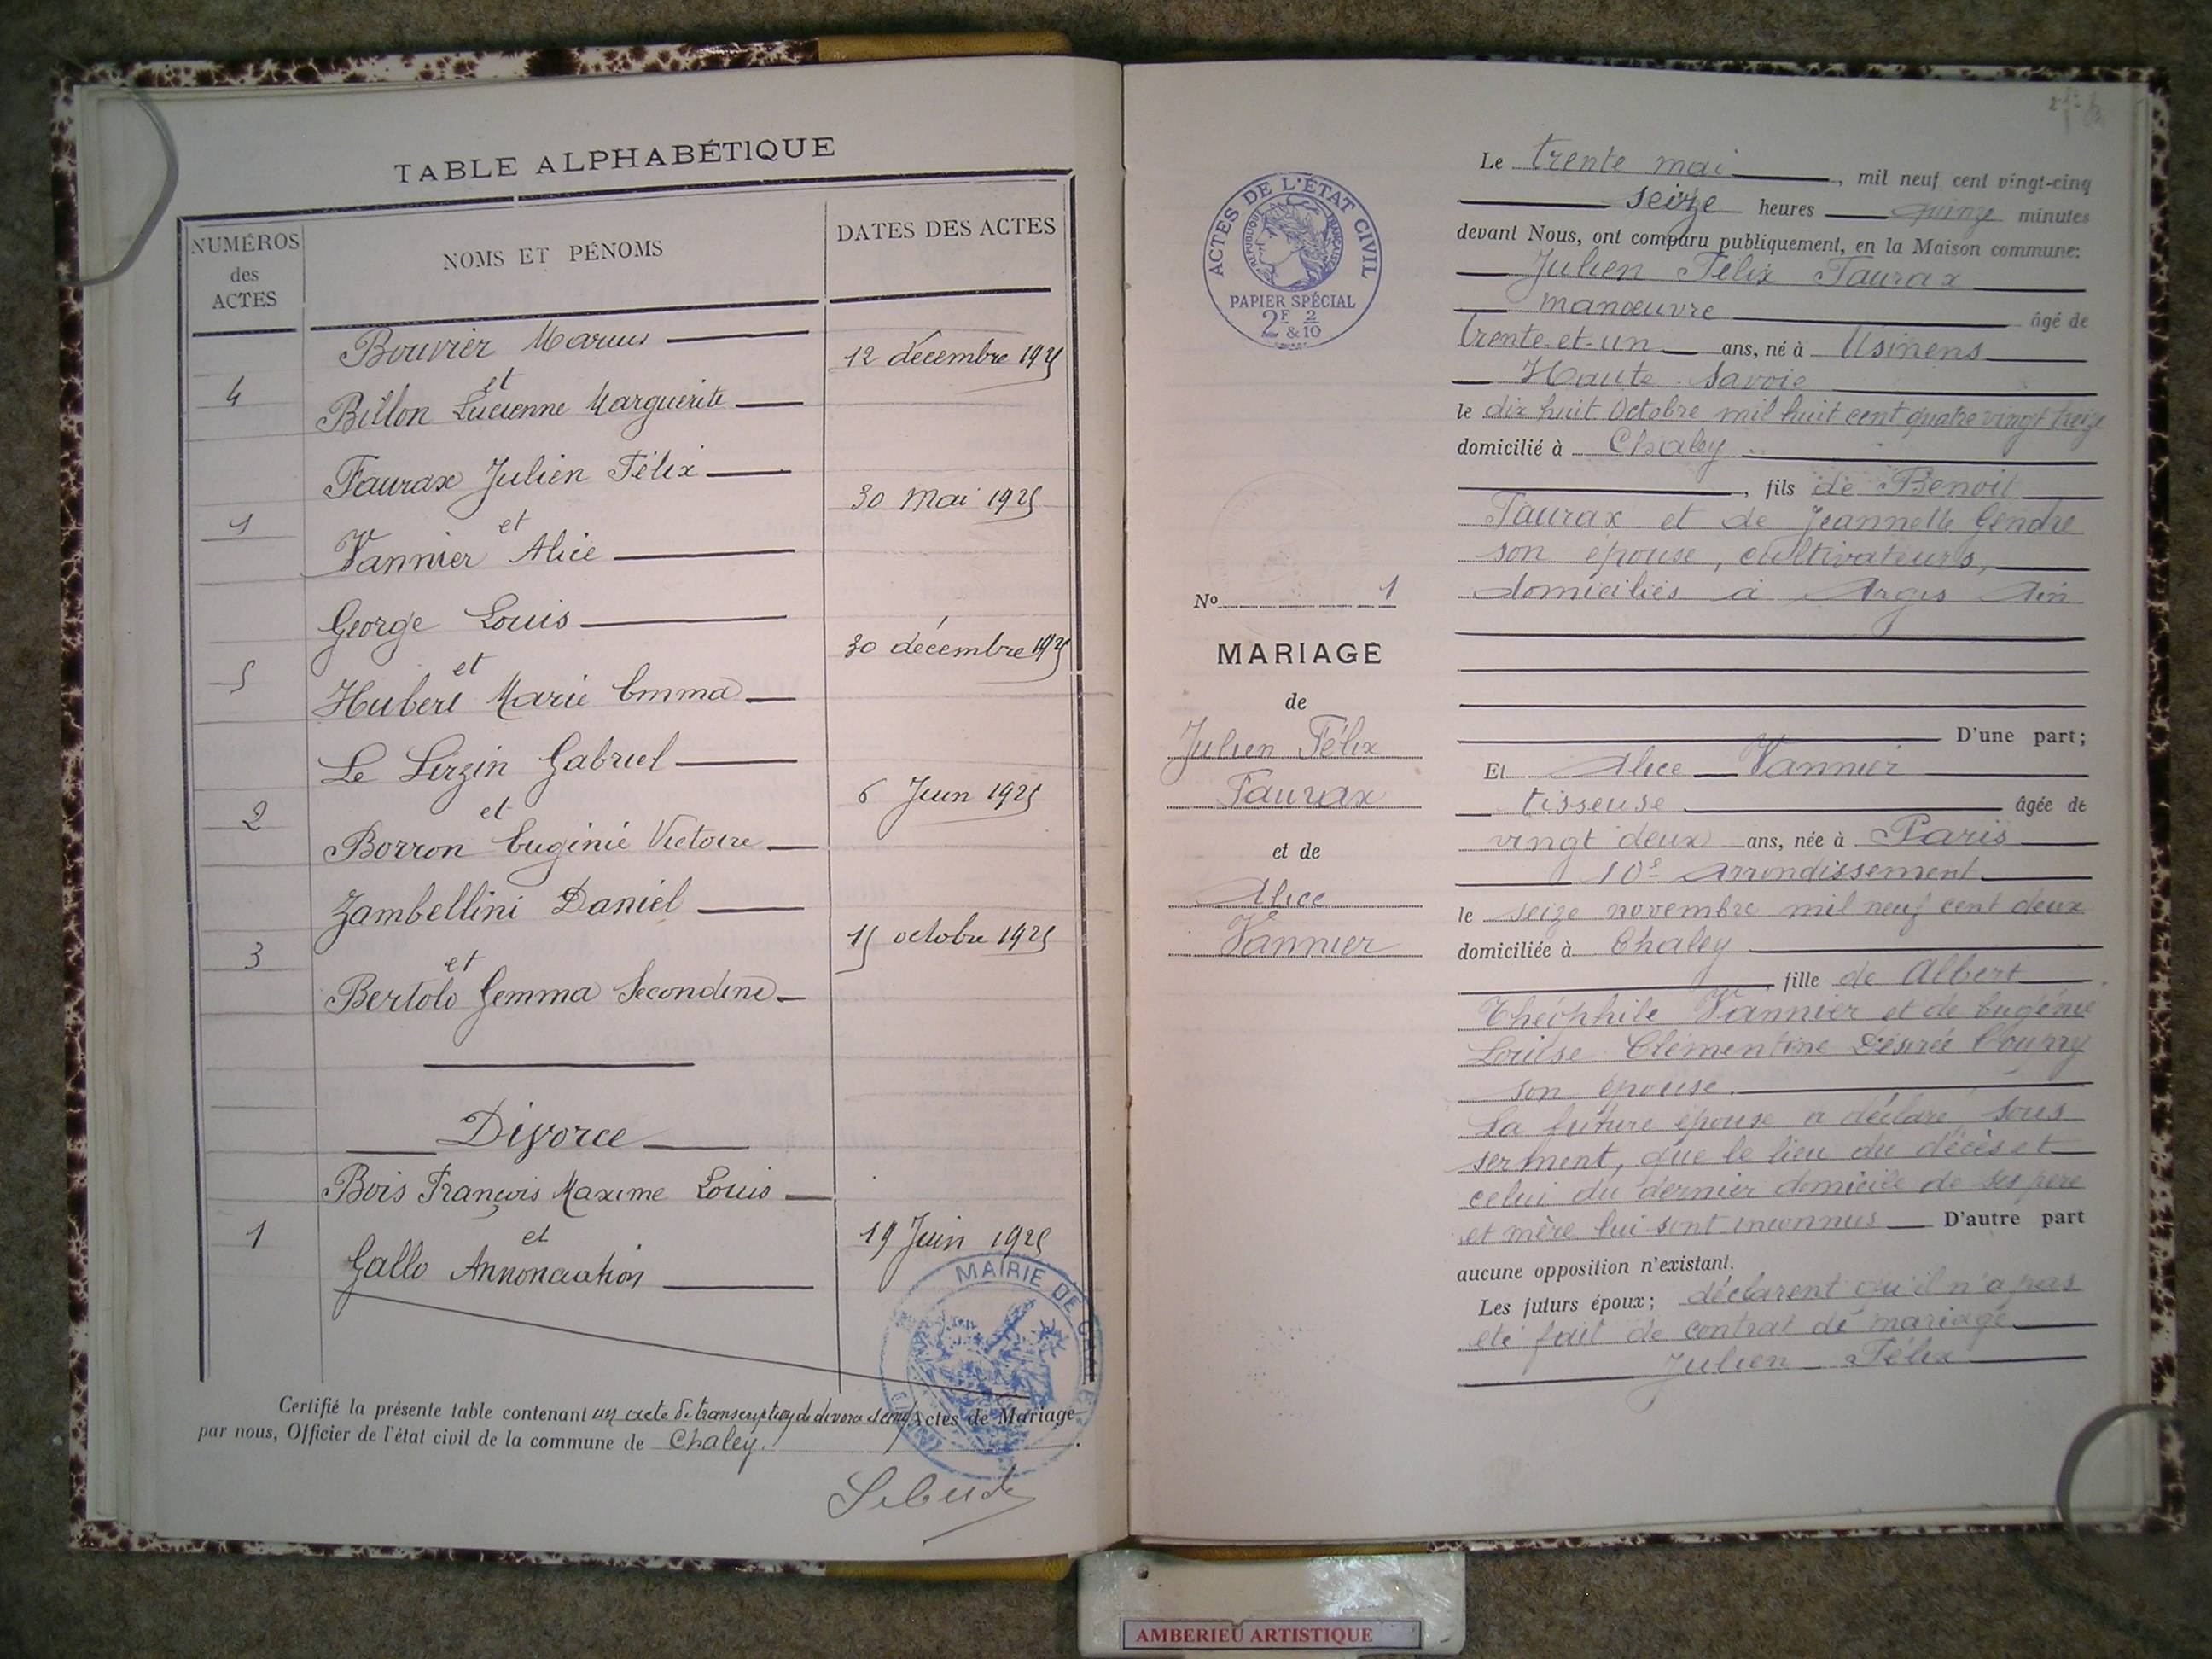 TABLE ALPHABÉTIQUE
NUMÉROS
des
ACTES
NOMS ET PÉNOMS
DATES DES ACTES
Bouvier Marius
4
et
12 décembre 1925
Billon Lucienne Marguerite
Faurax Julien Félix
1
et
30 Mai 1925
Vannier Alice
George Louis
5
et
30 décembre 1925
Hubert Marie Emma
Le Lirzin Gabriel
2
et
6 Juin 1925
Borron Eugénie Victoire
Zambellini Daniel
3
et
15 octobre 1925
Bertolo Gemma Secondina
Divorce
Bois François Maxime Louis
1
et
19 Juin 1925
Gallo Annonciation
MAIRIE DE
Certifié la présente table contenant un acte de transcription de divorce et cinq Actes de Mariage
par nous, Officier de l'état civil de la commune de Chaley.
ACTES DE L'ÉTAT CIVIL
RÉPUBLIQUE FRANÇAISE
PAPIER SPÉCIAL
2F 2
& 10
No 1
MARIAGE
de
Julien Félix
Faurax
et de
Alice
Vannier
Le trente mai, mil neuf cent vingt-cinq
seize heures quinze minutes
devant Nous, ont comparu publiquement, en la Maison commune:
Julien Félix Faurax
manœuvre âgé de
trente-et-un ans, né à Usinens
Haute Savoie
le dix huit Octobre mil huit cent quatre vingt treize
domicilié à Chaley
, fils de Benoit
Faurax et de Jeannette Gendre
son épouse, cultivateurs,
domiciliés à Argis Ain
D'une part;
Et Alice Vannier
tisseuse âgée de
vingt deux ans, née à Paris
10e arrondissement
le seize novembre mil neuf cent deux
domiciliée à Chaley
, fille de Albert
Théophile Vannier et de Eugénie
Louise Clémentine Désirée
son épouse.
La future épouse a déclaré, sous
serment, que le lieu du décès et
celui du dernier domicile de ses père
et mère lui sont inconnus D'autre part
aucune opposition n'existant.
Les futurs époux; déclarent qu'il n'a pas
été fait de contrat de mariage
Julien Félix
AMBERIEU ARTISTIQUE